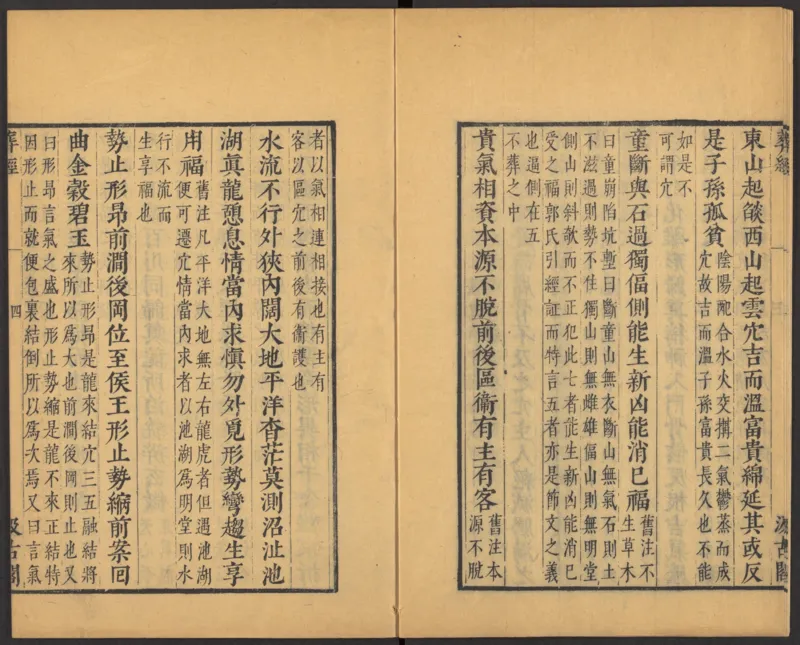 葬經
三
汲古閣
東山起燄西山起雲穴吉而溫富貴綿延其或反
是子孫孤貧
陰陽配合水火交搆二氣鬱蒸而成
穴故吉而溫子孫富貴長久也不能
如是不
可謂穴
童斷與石過獨偪側能生新凶能消已福
舊注不
生草木
曰童崩陷坑塹曰斷童山無衣斷山無氣石則土
不滋過則勢不住獨山則無雌雄偪山則無明堂
側山則斜欹而不正犯此七者能生新凶能消已
受之福郭氏引經証而特言五者亦是節文之義
也逼側在五
不葬之中
貴氣相資本源不脫前後區衞有主有客
舊注本
源不脫
者以氣相連相接也有主有
客以區穴之前後有衞護也
水流不行外狹内闊大地平洋杳茫莫測沼沚池
湖眞龍憩息情當内求愼勿外覓形勢彎趨生享
用福
舊注凡平洋大地無左右龍虎者但遇池湖
便可遷穴情當内求者以池湖爲明堂則水
行不流而
生享福也
勢止形昂前澗後岡位至侯王形止勢縮前案回
曲金穀碧玉
勢止形昂是龍來結穴三五融結將
來所以爲大也前澗後岡則止也又
曰形昂言氣之盛也形止勢縮是龍不來正結特
因形止而就便包裹結倒所以爲次焉又曰言氣
葬經
四
汲古閣